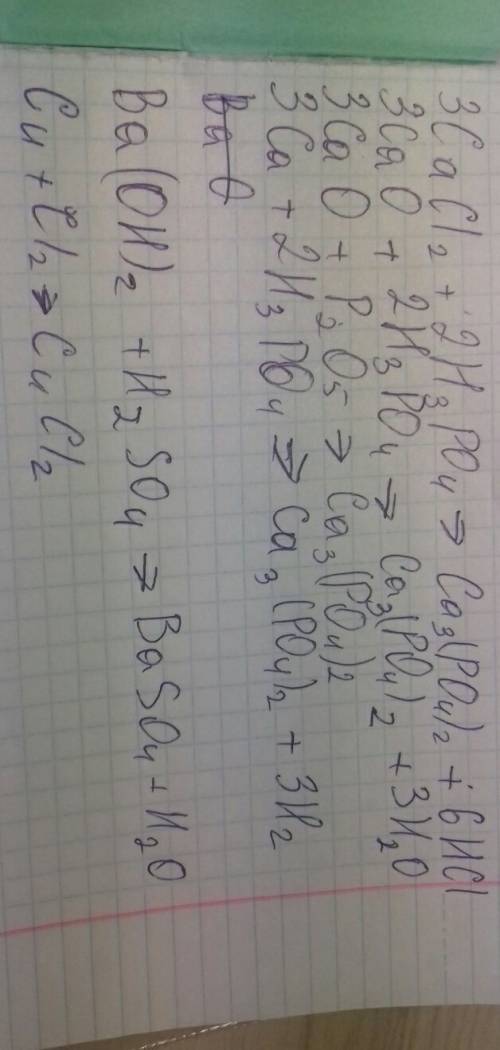 3CaCl₂ + 2H₃PO₄ → Ca₃(PO₄)₂ + 6HCl
3CaO + 2H₃PO₄ → Ca₃(PO₄)₂ + 3H₂O
3CaO + P₂O₅ → Ca₃(PO₄)₂
3Ca + 2H₃PO₄ → Ca₃(PO₄)₂ + 3H₂
Ba(OH)₂ + H₂SO₄ → BaSO₄ + H₂O
Cu + Cl₂ → CuCl₂